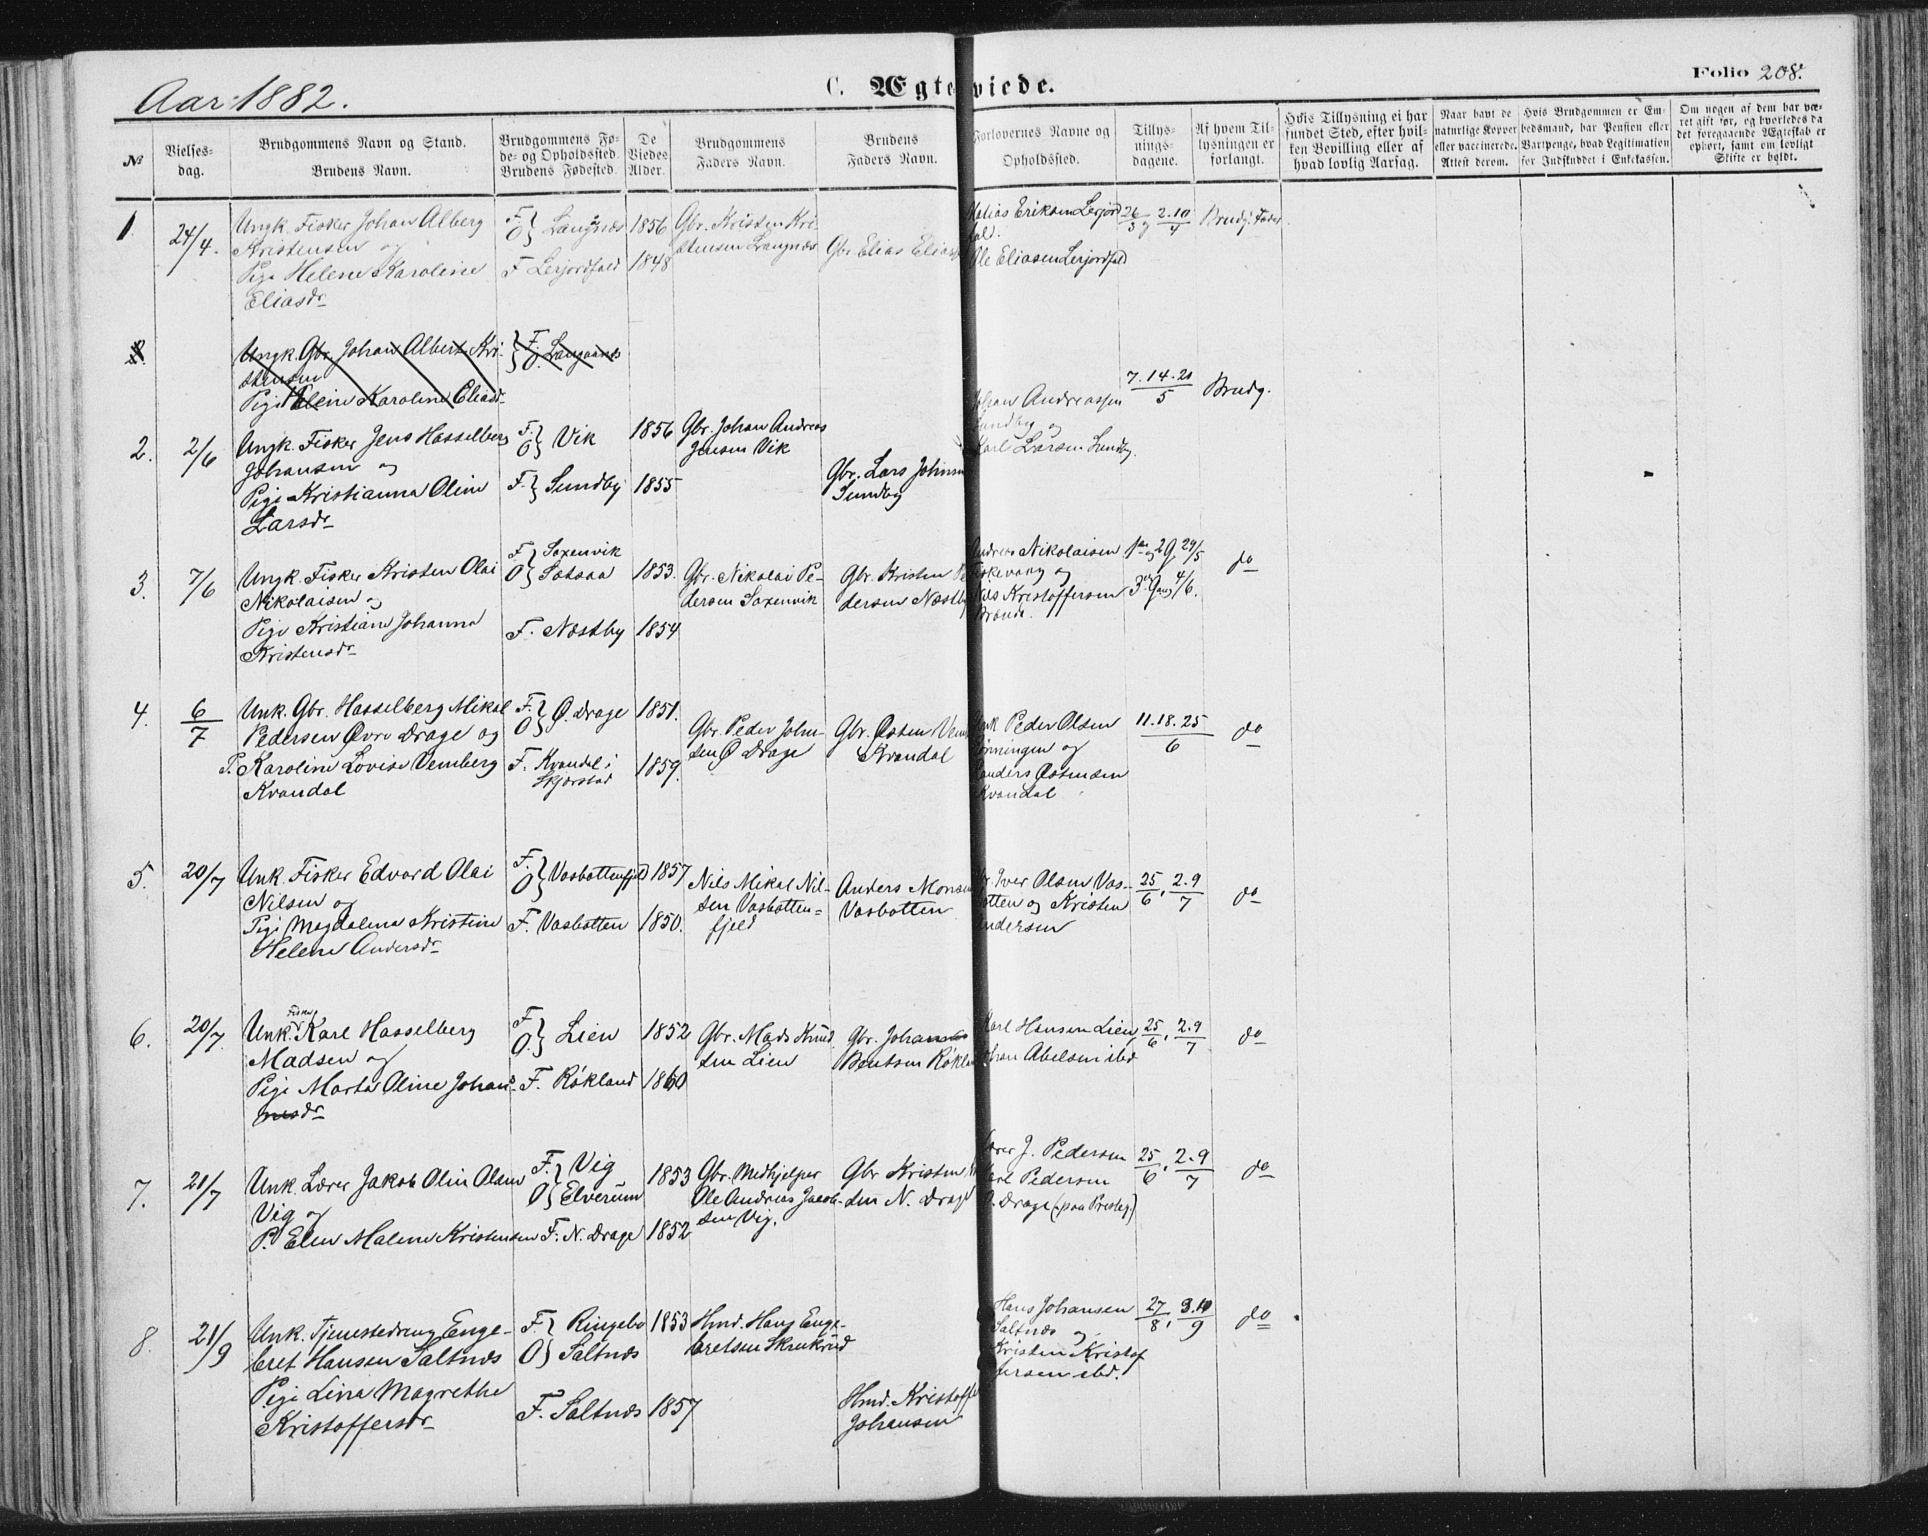 Aar 1882.
C. Ægteviede.
Folio 208.
№
Vielses-
dag.
Brudgommens Navn og Stand.
Brudens Navn.
Brudgommens Fø-
de- og Opholdssted.
Brudens Fødested.
De
Viedes
Alder.
Brudgommens
Faders Navn.
Brudens
Faders Navn.
Forlovernes Navne og
Opholdssted.
Tillys-
nings-
dagene.
Af hvem Til-
lysningen er
forlangt.
Hvis Tillysning ei har
fundet Sted, efter hvil-
ken Bevilling eller af
hvad lovlig Aarsag.
Naar havt de
naturlige Kopper
eller vaccinerede.
Attest derom.
Hvis Brudgommen er Em-
bedsmand, har Pension eller
Vartpenge, hvad Legitimation
for Indskuddet i Enkekassen.
Om nogen af dem har væ-
ret gift før, og hvorledes da
det foregaaende Ægteskab er
ophørt, samt om lovligt
Skifte er holdt.
1.
24/4.
Ungk. Fisker Johan Alberg
Kristensen og
Pige Helene Karoline
Eliasdr
F. O } Langnæs
F. Lerjordfald
1856
1848
Gbr. Kristen Kri-
stensen Langnæs
Gbr Elias Elias
Eriksen Lerjord
fald.
Ole Eliasen Lerjordfald
26/3 og 2.10/4
Brudg. Fader
Ungk. Gbr. Johan Albert Kri-
stensen
Pige Elene Karoline Eliasdr
F. O.
2.
2/6
Ungk. Fisker Jens Hasselberg
Johansen og
Pige Kristianna Oline
Larsdr
F. O } Vik
F. } Sundby
1856
1855
Gbr. Johan Andreas
Jensen Vik
Gbr. Lars Johnsen
Sundby
Johan Andreassen
Sundby og
Karl Larsen Sundby.
7.14.21/5
Brudg.
3.
7/6
Ungk. Fisker Kristen Olai
Nikolaisen og
Pige Kristiane Johanna
Kristensdr
F. O } Saxenvik
Satsaa
F. Næstby
1853.
1854
Gbr. Nikolai Pe-
dersen Saxenvik
Gbr. Kristen Pe
dersen Næstby
Andreas Nikolaisen
Fiskevaag og
Nils Kristoffersen
1ste og 2 G. 29/5
3die Gang 4/6.
do
4.
6/7
Unk. Gbr. Hasselberg Mikal
Pedersen Øvre Drage og
P. Karoline Lovise Vemberg
Kvandal
F. O } Ø. Drage
F. Kvandal i
Skjerstad
1851.
1859.
Gbr. Peder John-
sen Ø Drage
Gbr. Østen
Kvandal
Unk Peder Olsen
og
Anders Østensen
Kvandal
11.18.25/6
do
5.
20/7
Unk. Fisker Edvard Olai
Nilsen og
Pige Magdalena Kristine
Helene Andersdr
F. O } Vasbottenfjeld
F. Vasbotten
1857
1850.
Nils Mikal Nil-
sen Vasbotten=
fjeld
Anders Monsen
Vasbotten
Gbr. Iver Olsen Vas-
botten og Kristen
Andersen
25/6, 2.9/7
do
6.
20/7.
Unk. Fisker Karl Hasselberg
Madsen og
Pige Marta Oline Johans-
nesdr
F. O. } Lien
F. Røkland
1852
1860
Gbr. Mads Knud
sen Lien
Gbr. Johannes
Bentsen Røkland
Karl Hansen Lien
Johan Abelsen ibd
25/6, 2.9/7
do
7.
21/7
Unk. Lærer Jakob Olin Olsen
Vig og
P. Elen Malene Kristensen
F. O } Vig
Elverum
F. N. Drage
1853
1852
Gbr. Medhjelper
Ole Andreas Jacob-
sen Vig.
Gbr Kristen
sen N. Drage
Lærer J. Pedersen
Karl Pedersen
N. Drage (paa Presteg.)
25/6, 2.9/7
do
8.
21/9
Unk. Tjenestedreng Enge-
bret Hansen Saltnæs
Pige Lina Magrethe
Kristoffersdr
F. O } Ringebo
Saltnæs
F. Saltnæs
1853
1857
Hmd. Hans Enge-
bretsen Skrukrud
Hmd. Kristoffer
Johansen
Hans Johansen
Saltnæs og
Kristen Kristof
fersen ibd.
27/8, 3.10/9
do